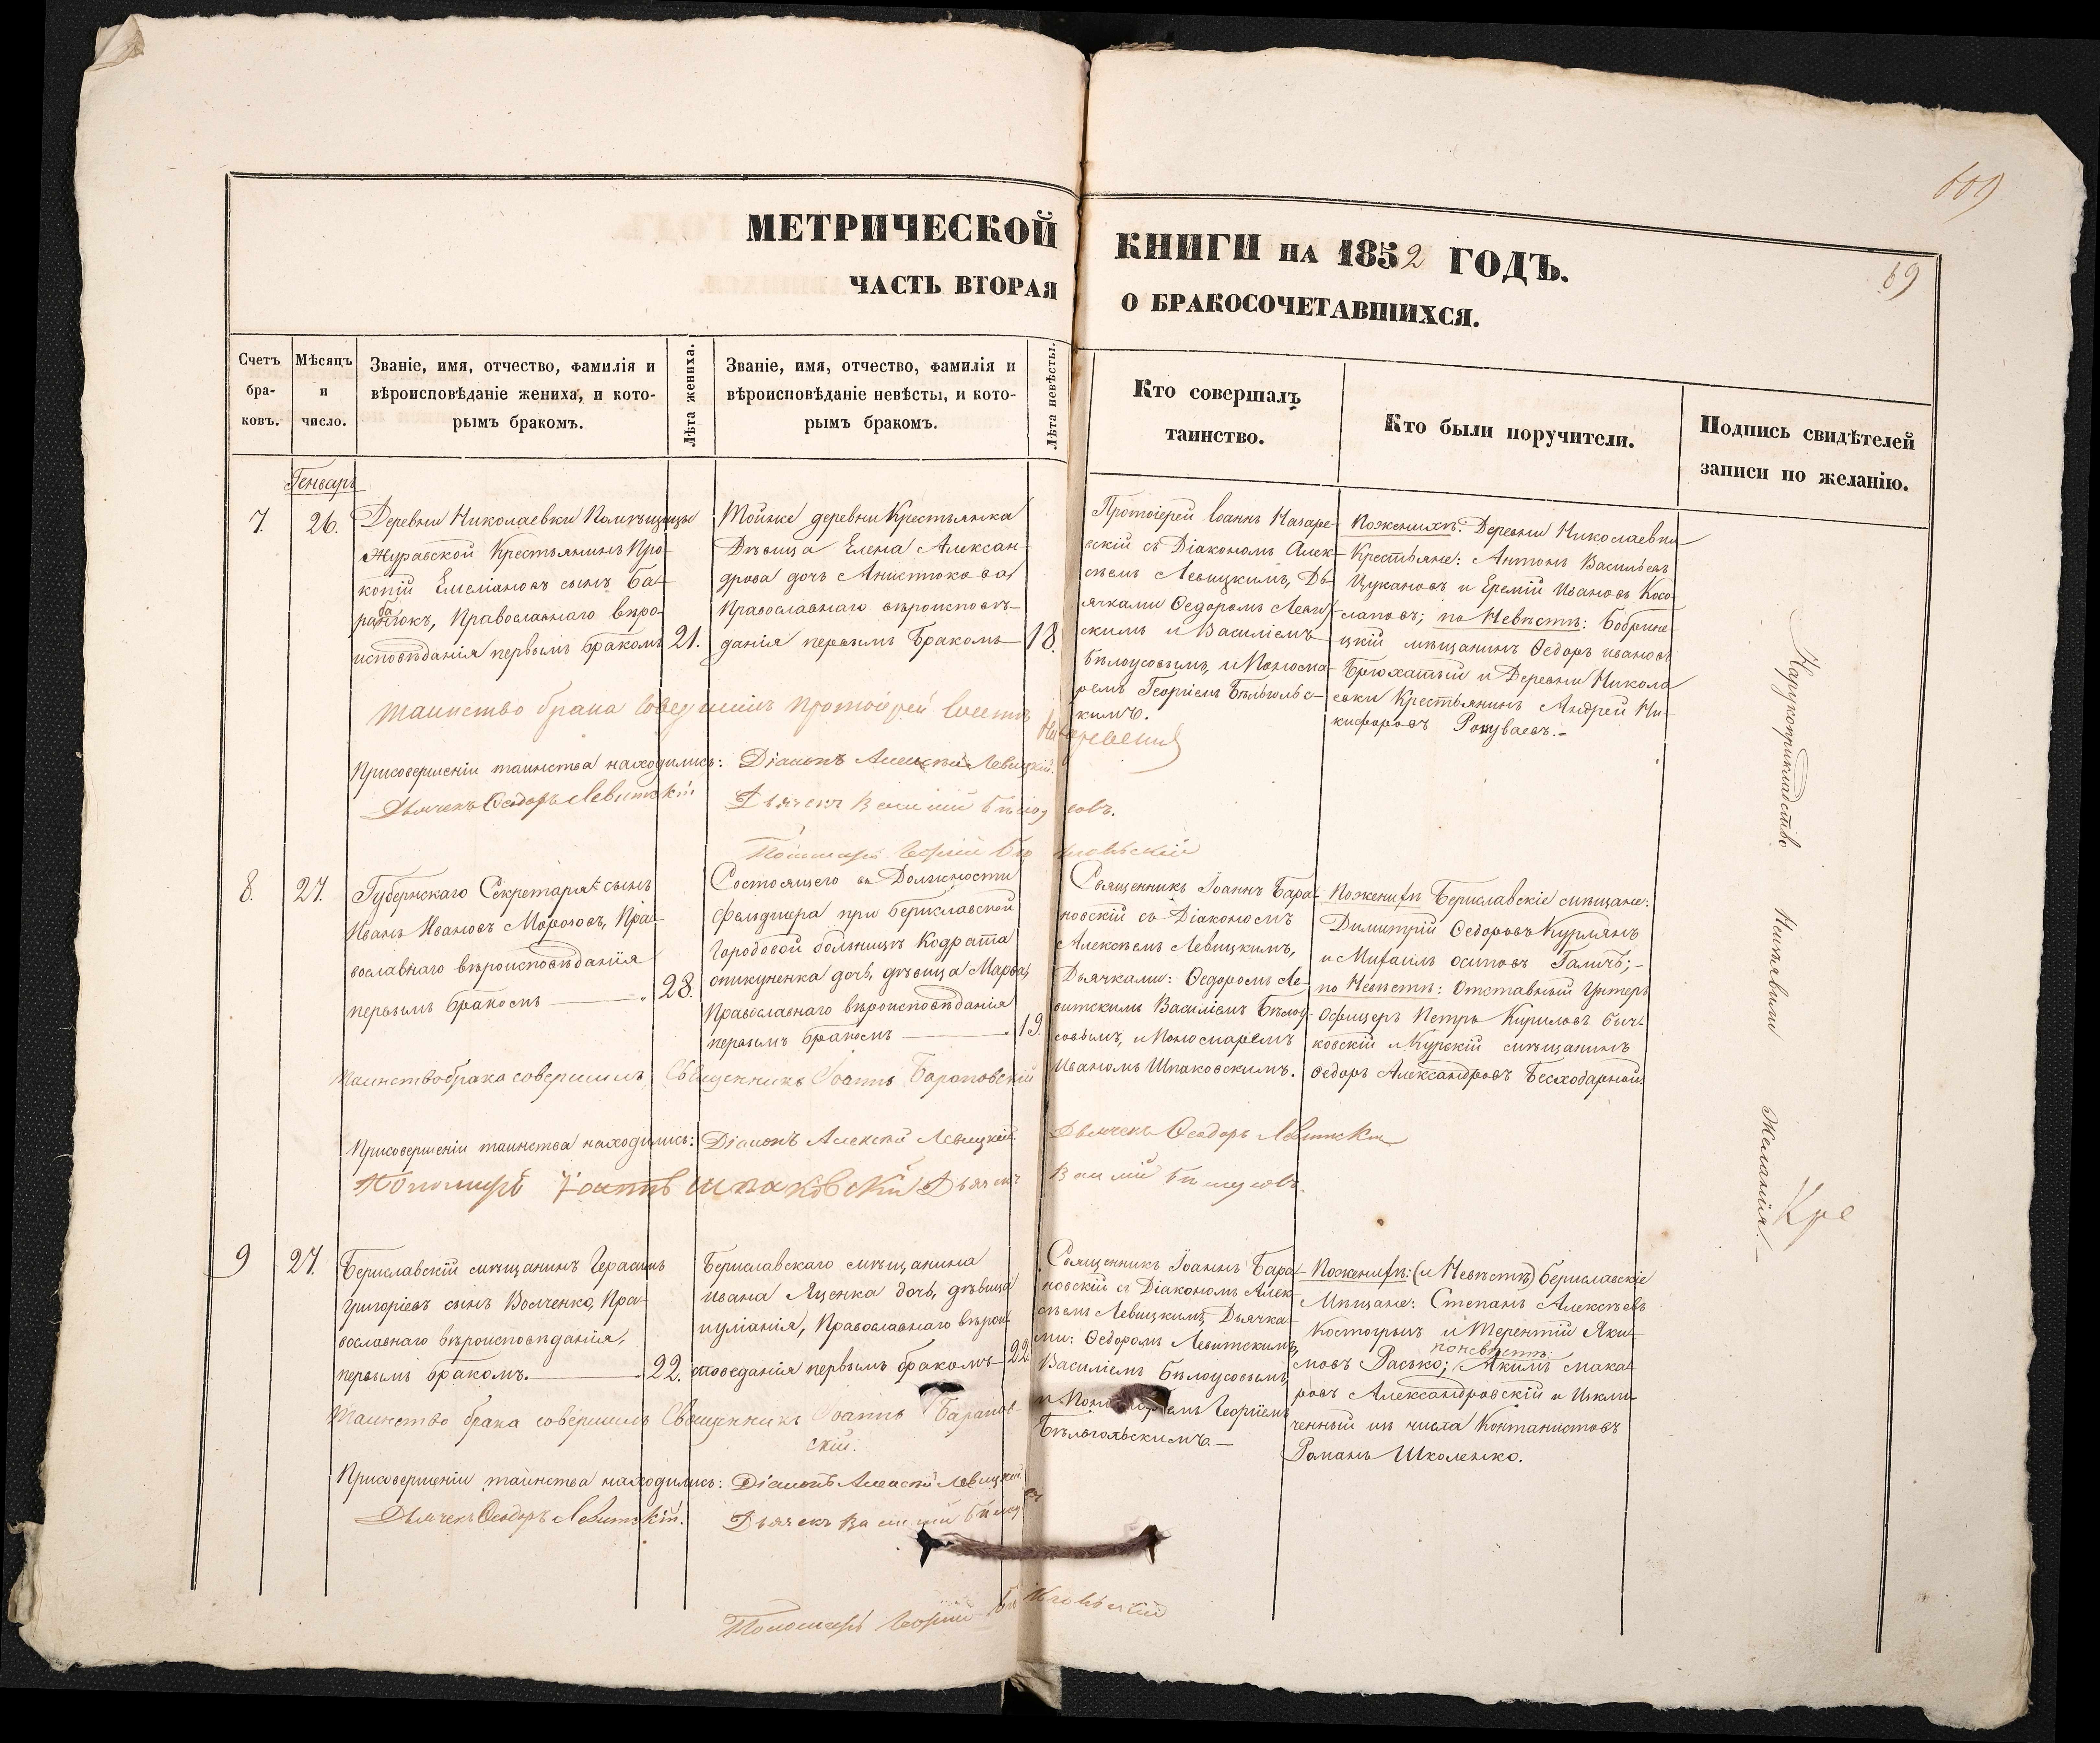 609
69
МЕТРИЧЕСКОЙ КНИГИ НА 1852 ГОДЪ.
ЧАСТЬ ВТОРАЯ О БРАКОСОЧЕТАВШИХСЯ.
Счетъ бра-ковъ.
Мѣсяцъ и число.
Званіе, имя, отчество, фамилія и
вѣроисповѣданіе жениха, и кото-
рымъ бракомъ.
Лѣта жениха.
Званіе, имя, отчество, фамилія и
вѣроисповѣданіе невѣсты, и кото-
рымъ бракомъ.
Лѣта невѣсты.
Кто совершалъ
таинство.
Кто были поручители.
Подпись свидѣтелей
записи по желанію.
Генварь
7.
26.
Деревни Николаевки Помѣщицы
Журавской Крестьянинъ Про-
копій Емеліановъ сынъ Ба-
рабанокъ, Православнаго вѣро-
исповѣданія первымъ бракомъ
21.
Тойже деревни Крестьянка
Дѣвица Елена Алексан-
дрова дочь
Православнаго вѣроисповѣ-
данія первымъ бракомъ
18.
Протоіерей Іоаннъ Назаре-
вскій съ Діакономъ Алек-
сѣемъ Левицкимъ, Дь-
ячками Ѳедоромъ Левит-
скимъ и Василіемъ
Бѣлоусовымъ, и Понома-
ремъ Георгіемъ Бѣльговс-
кимъ.
По женихѣ: Деревни Николаевки
Крестьяне: Антонъ Васильевъ
Цукановъ и Еремій Ивановъ Косо-
лаповъ; по Невѣстѣ: Бобрине-
цкій мѣщанинъ Ѳедоръ Ивановъ
Брюхатый и Деревни Никола
евки Крестьянинъ Андрей Ни-
кифоровъ
Таинство брака совершилъ Протоіерей Іоаннъ
При совершеніи таинства находились: Діаконъ Алексѣй Левицкій.
Дьячекъ Ѳеодоръ Левитскій
Дьячекъ Василій Бѣлоусовъ.
Пономарь Георгій
8.
27.
Губернскаго Секретаря сынъ
Иванъ Ивановъ Морозовъ, Пра-
вославнаго вѣроисповѣданія
первымъ бракомъ
28.
Состоящего въ Должности
Фельдшера при бериславской
Городовой больницѣ Кодрата
опикуненка дочь, дѣвица Марѳа,
Православнаго вѣроисповѣданія
первымъ бракомъ
19.
Священникъ Іоаннъ Бара-
новскій съ Діакономъ
Алексѣемъ Левицкимъ,
Дьячками: Ѳедоромъ Ле-
витскимъ Василіемъ Бѣлоу-
совымъ, и Пономаремъ
Иваномъ Шпаковскимъ.
По женихѣ Бериславскіе мѣщане:
Димитрій Ѳедоровъ Курмянъ
и Михаилъ осиповъ Галичь;-
по Невѣстѣ: Отставный Унтеръ
Офицеръ Петръ Кириловъ быч-
ковскій и Курскій мѣщанинъ
Ѳедоръ Александровъ
Таинство брака совершилъ Священникъ Іоаннъ Барановскій
При совершеніи таинства находились: Діаконъ Алексѣй Левицкій.
Дьячекъ Ѳеодоръ Левитскій
Пономарь Іоаннъ Шпаковскій Дьячекъ
Василій Бѣлоусовъ.
9
27.
Бериславскій мѣщанинъ Герасимъ
григоріевъ сынъ Волченко, Пра-
вославнаго вѣроисповѣданія,
первымъ бракомъ.
22.
Бериславскаго мѣщанина
ивана Яценка дочь, дѣвица
иуліанія, Православнаго вѣрои-
споведанія первымъ бракомъ
22.
Священникъ Іоаннъ Бара-
новскій съ Діакономъ Алек-
сѣемъ Левицкимъ, Дьячка-
ми: Ѳедоромъ Левитскимъ,
Василіемъ Бѣлоусовымъ,
и Пономаремъ Георгіемъ
Бѣльговскимъ.
По женихѣ: (и Невѣстѣ) бериславскіе
Мѣщане: Степанъ Алексѣевъ
Костогрызъ и Терентій Яки-
мовъ Расько; по невѣстѣ: Якимъ мака
ровъ Александровскій и Исклю-
ченный изъ числа Контанистовъ
Романъ Школенко.
Таинство брака совершилъ Священникъ Іоаннъ Баранов-
скій.
При совершеніи таинства находились: Діаконъ Алексѣй Левицкій
Дьячекъ Ѳеодоръ Левитскій.
Дьячекъ Василій
Пономарь Георгій
На рукоприкладство Неизъявили Желанія.
Кре